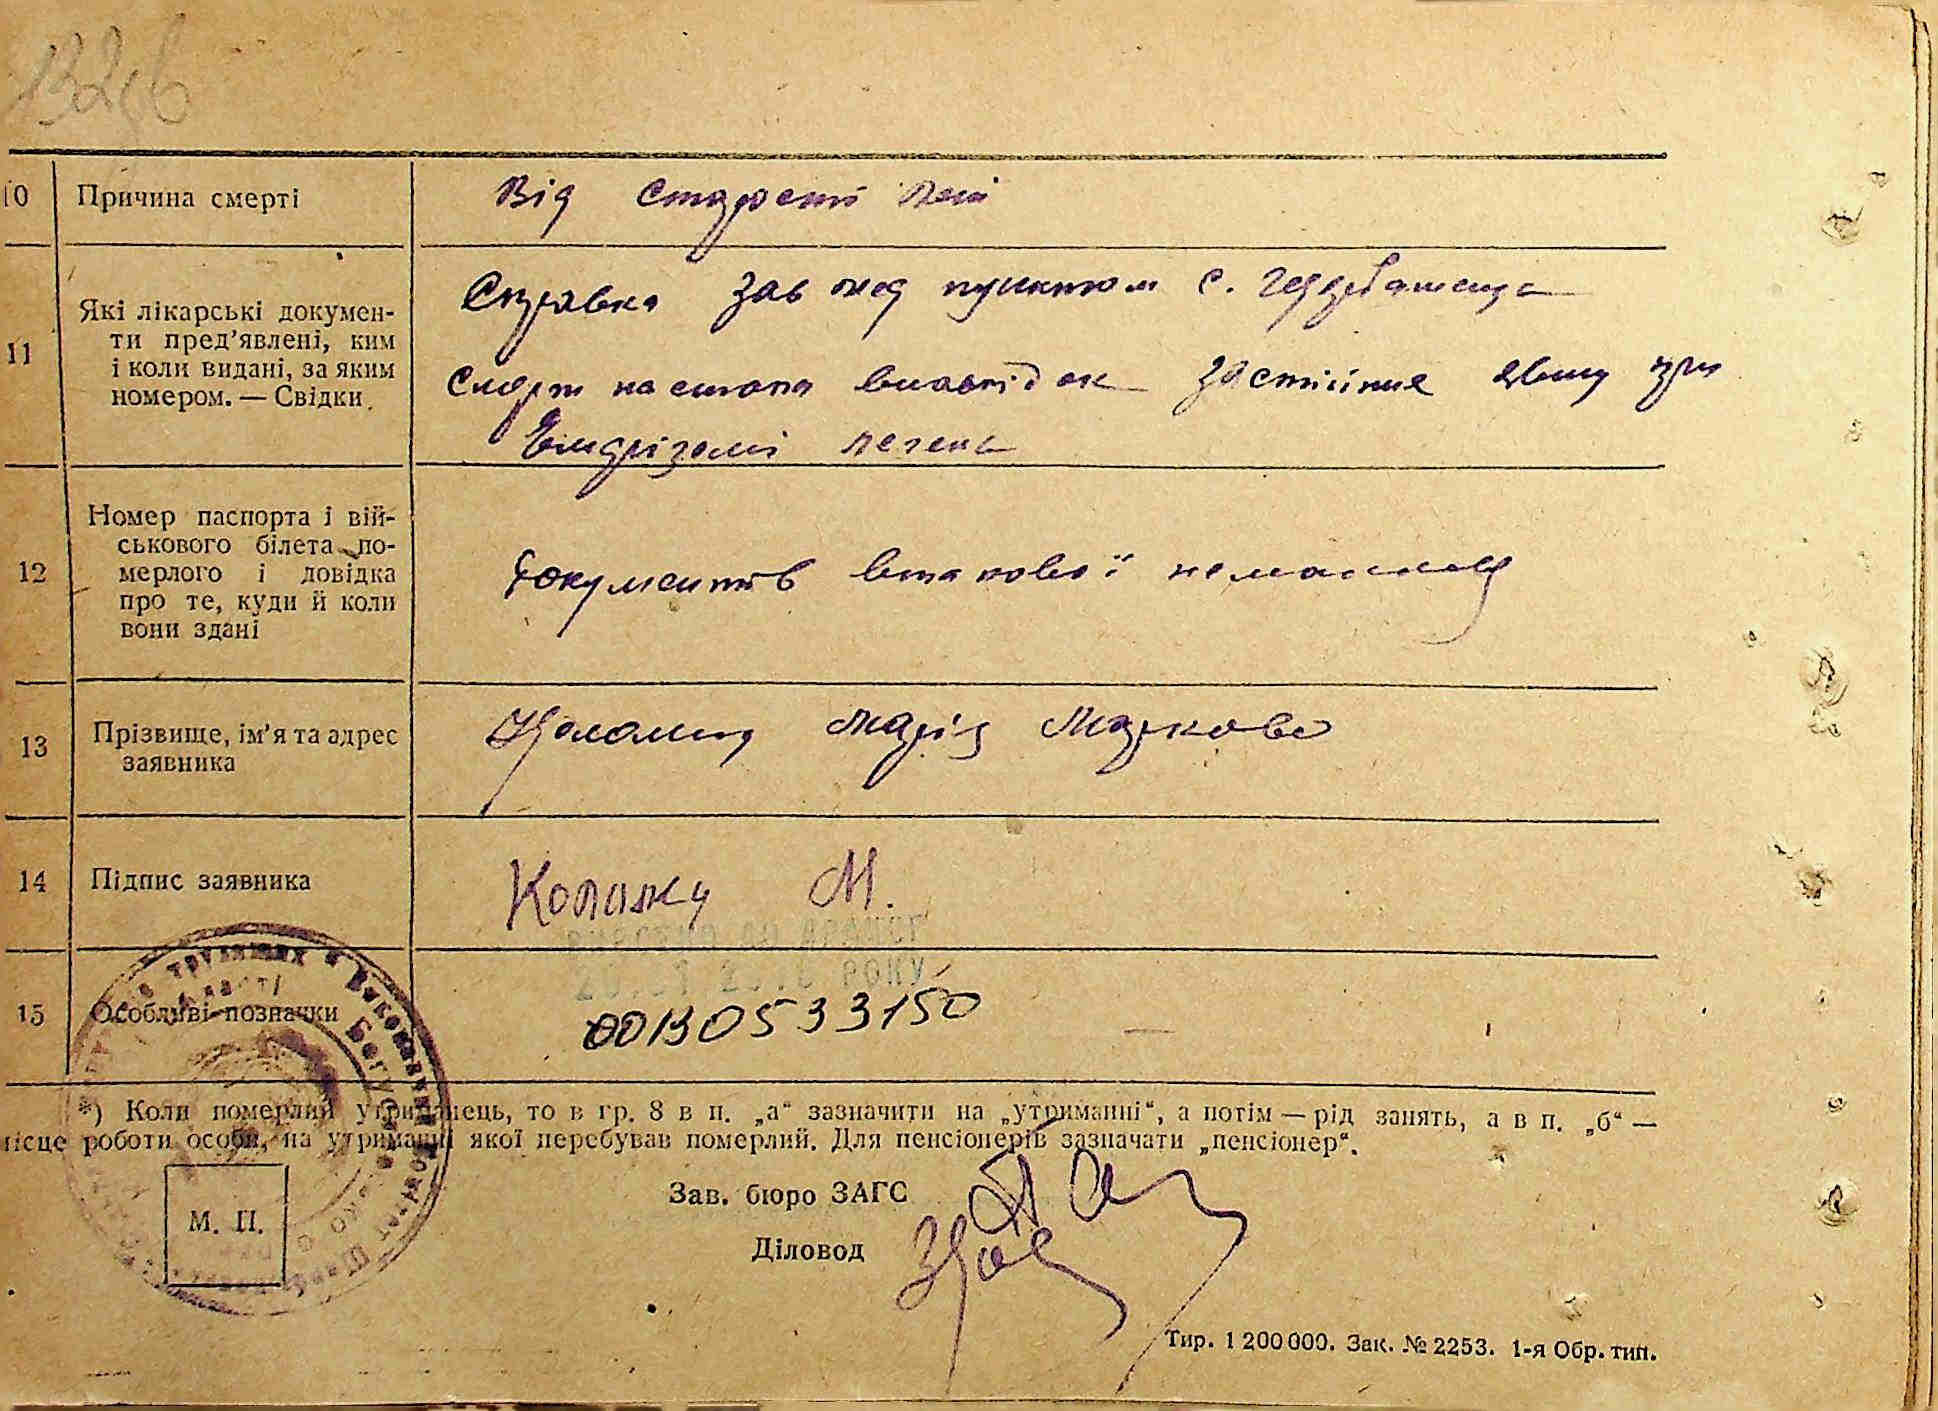 10 Причина смерті Від старости
11 Які лікарські докумен-
ти пред'явлені, ким
і коли видані, за яким
номером. — Свідки
Справка зав мед пунктом с.
Смерт настала внаслідок застійних явищ при
Емфіземі легень
12 Номер паспорта і вій-
ськового білета по-
мерлого і довідка
про те, куди й коли
вони здані
Документів
13 Прізвище, ім'я та адрес
заявника
Марія Маркова
14 Підпис заявника М.
РОКУ
15 Особливі позначки 00130533150
*) Коли померлий утриманець, то в гр. 8 в п. „а“ зазначити на „утриманні“, а потім — рід занять, а в п. „б“ —
місце роботи особи, на утриманні якої перебував померлий. Для пенсіонерів зазначати „пенсіонер“.
Зав. бюро ЗАГС
М. П.
Діловод
Тир. 1 200 000. Зак. № 2253. 1-я Обр. тип.